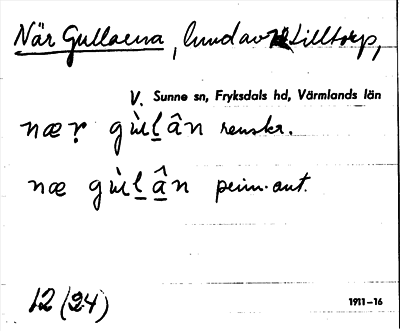 När Gullaena, lund av Lilltorp,
V. Sunne sn, Fryksdals hd, Värmlands län
næṛ gùl̲ân renskr.
næ gùl̲â̲n prim. aut.
12 (24) 1911–16